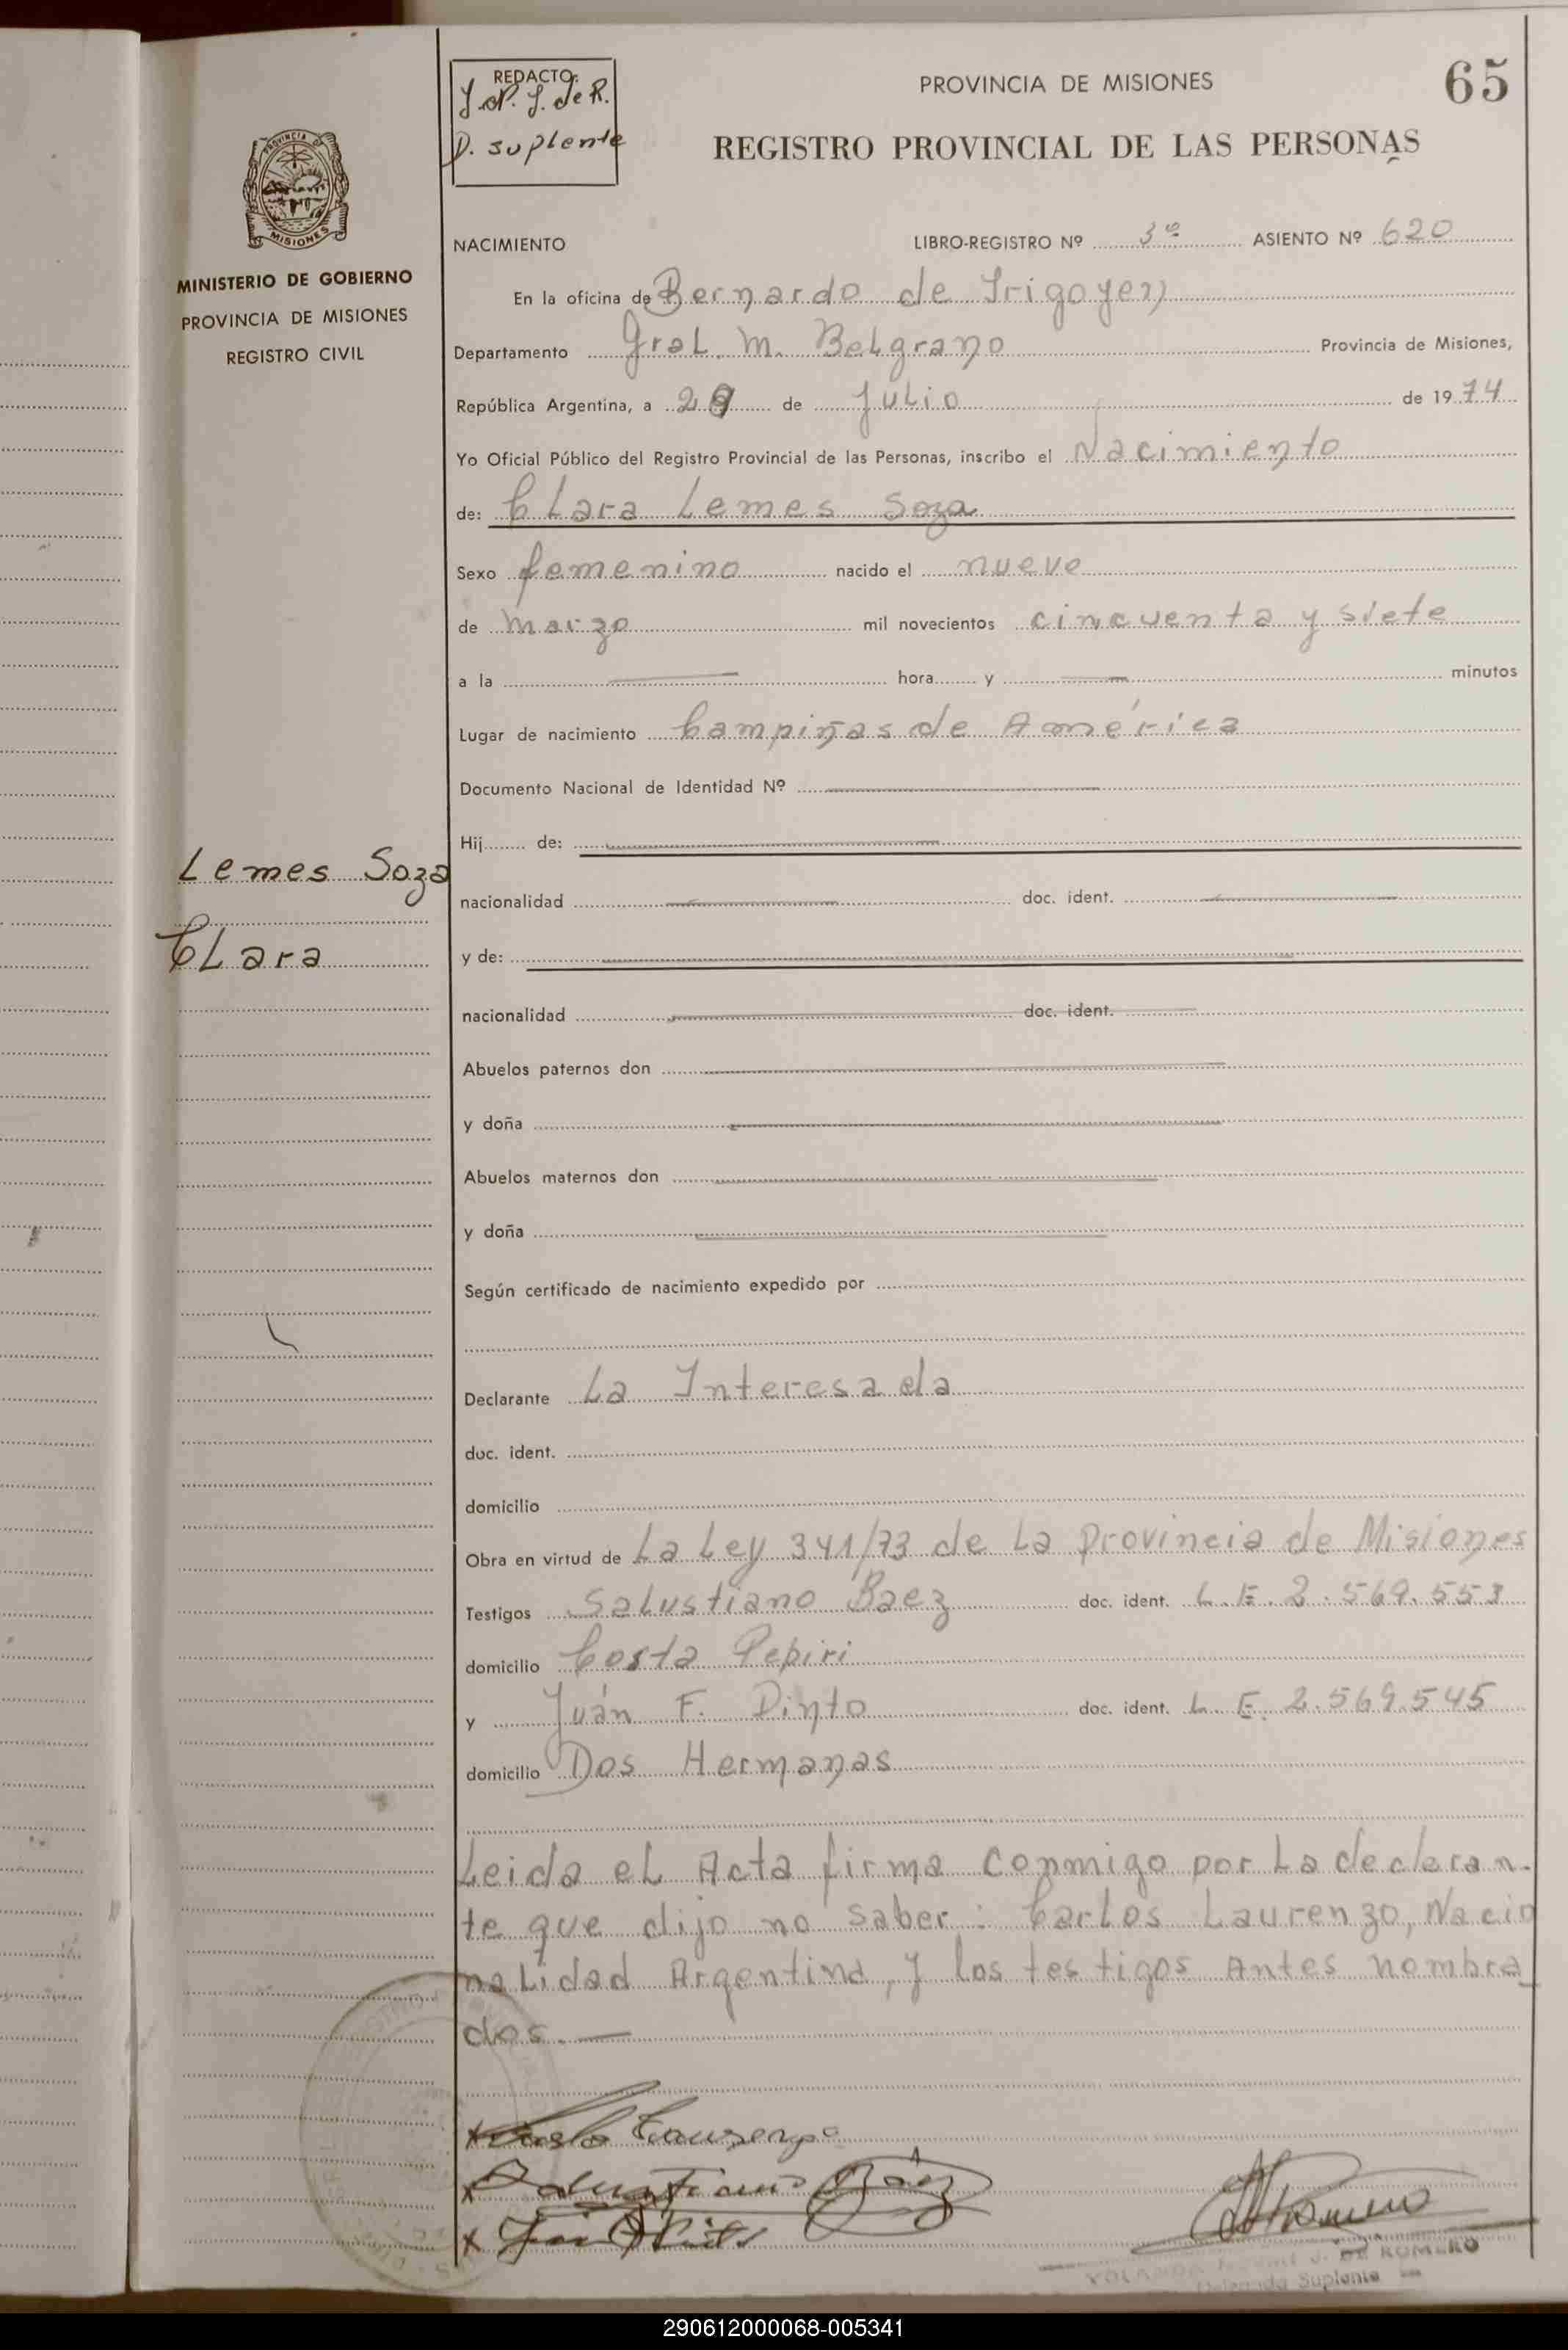 REDACTO:
Y. N. J. de R.
D. suplente
PROVINCIA DE MISIONES
65
REGISTRO PROVINCIAL DE LAS PERSONAS
MISIONES
MINISTERIO DE GOBIERNO
PROVINCIA DE MISIONES
REGISTRO CIVIL
NACIMIENTO LIBRO-REGISTRO Nº 3º ASIENTO Nº 620
En la oficina de Bernardo de Irigoyen
Departamento Gral. M. Belgrano Provincia de Misiones,
República Argentina, a 29 de Julio de 1974
Yo Oficial Público del Registro Provincial de las Personas, inscribo el Nacimiento
de: Clara Lemes Soza
Sexo femenino nacido el nueve
de Marzo mil novecientos cincuenta y siete
a la hora y minutos
Lugar de nacimiento Campiñas de América
Documento Nacional de Identidad Nº
Hij de:
Lemes Soza
nacionalidad doc. ident.
Clara
y de:
nacionalidad doc. ident.
Abuelos paternos don
y doña
Abuelos maternos don
y doña
Según certificado de nacimiento expedido por
Declarante La Interesada
doc. ident.
domicilio
Obra en virtud de La Ley 341/73 de La Provincia de Misiones
Testigos Salustiano Baez doc. ident. L. E. 2.569.553
domicilio Costa Pepiri
y Juán F. Pinto doc. ident. L. E. 2.569.545
domicilio Dos Hermanas
Leida el Acta firma conmigo por La declaran-
te que dijo no saber: Carlos Laurenzo, Nacio
nalidad Argentina, y los testigos Antes nombra
dos.—
Salustiano Báez
YOLANDA J. DE ROMERO
Delegada Suplente
290612000068-005341